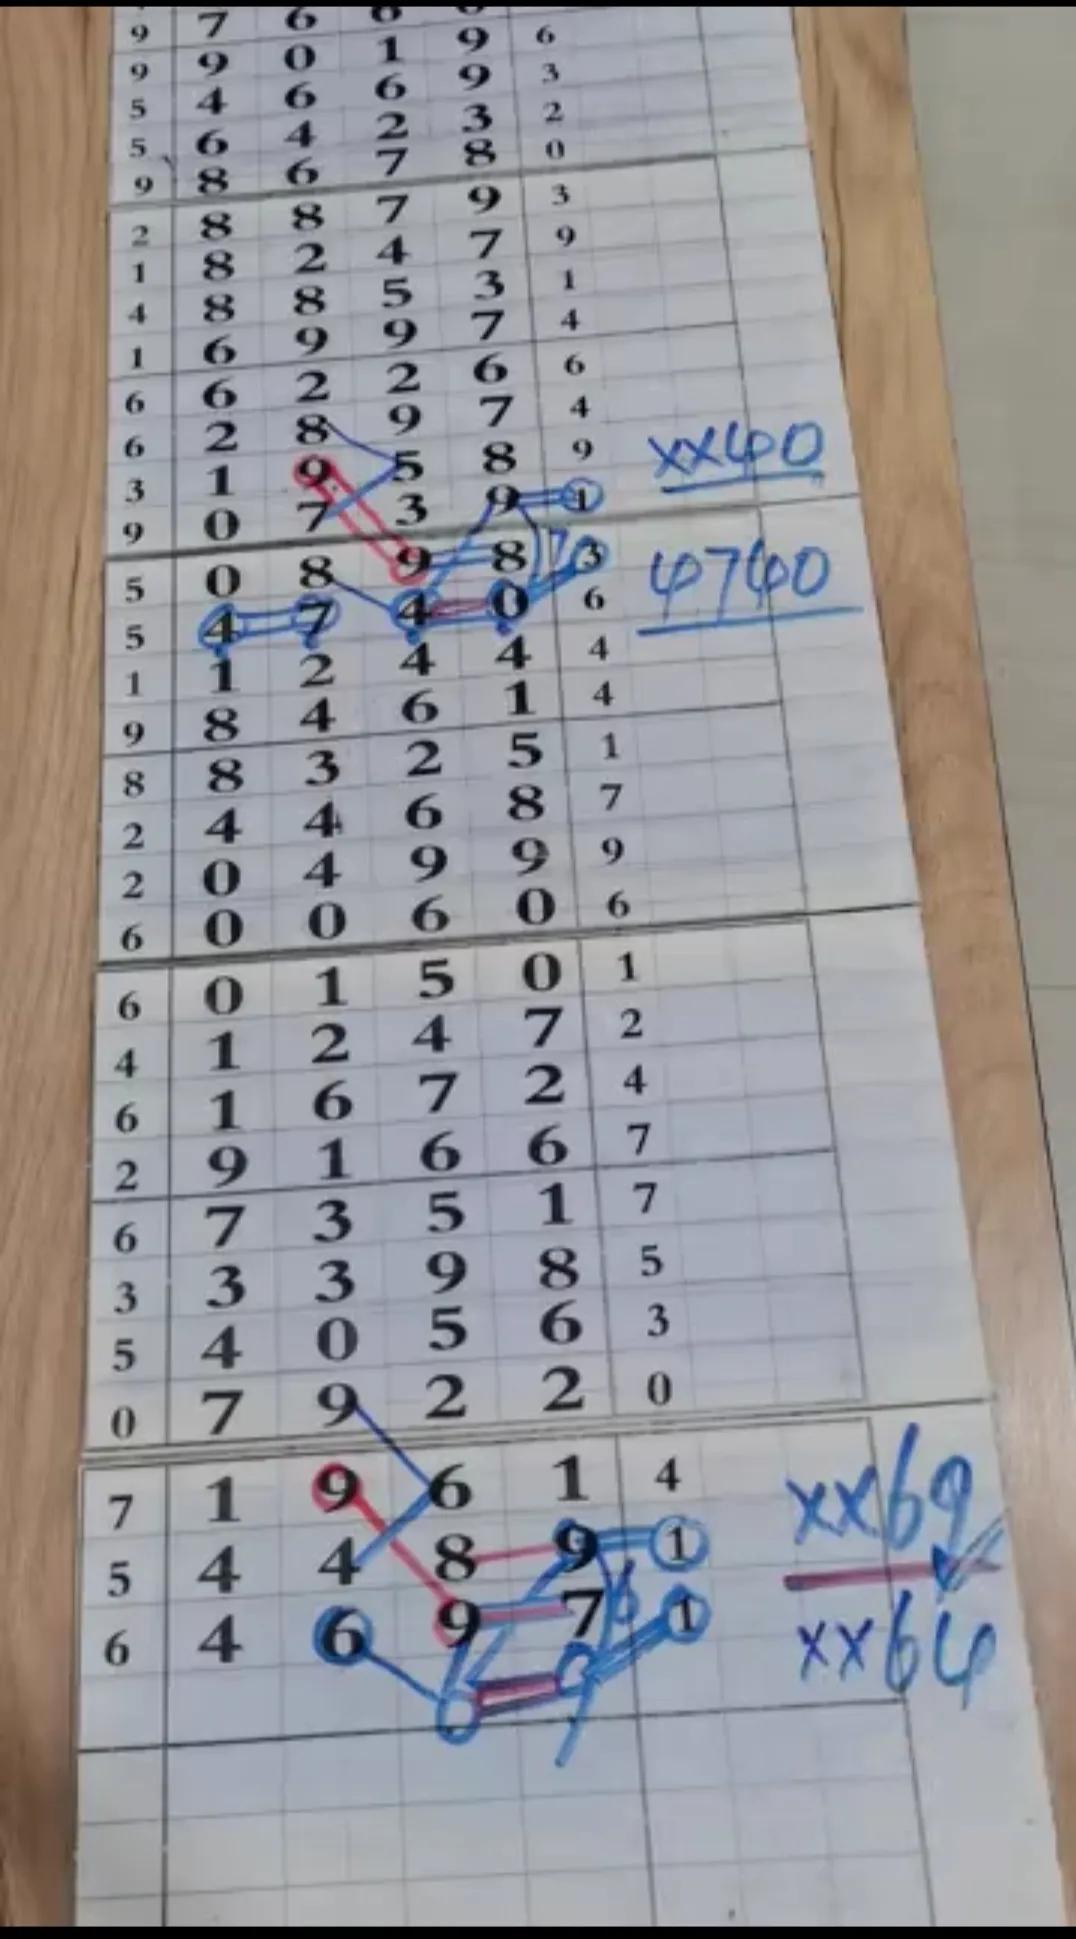 9 7 6
9 9 0 1 9 6
5 4 6 6 9 3
5 6 4 2 3 2
9 8 6 7 8 0
2 8 8 7 9 3
1 8 2 4 7 9
4 8 8 5 3 1
1 6 9 9 7 4
6 6 2 2 6 6
6 2 8 9 7 4
3 1 9 5 8 9 xx40
9 0 7 3 9 1
5 0 8 9 8 3 4740
5 4 7 4 0 6
1 1 2 4 4 4
9 8 4 6 1 4
8 8 3 2 5 1
2 4 4 6 8 7
2 0 4 9 9 9
6 0 0 6 0 6
6 0 1 5 0 1
4 1 2 4 7 2
6 1 6 7 2 4
2 9 1 6 6 7
6 7 3 5 1 7
3 3 3 9 8 5
5 4 0 5 6 3
0 7 9 2 2 0
7 1 9 6 1 4 xx69
5 4 4 8 9 1
6 4 6 9 7 1 xx64
6 9